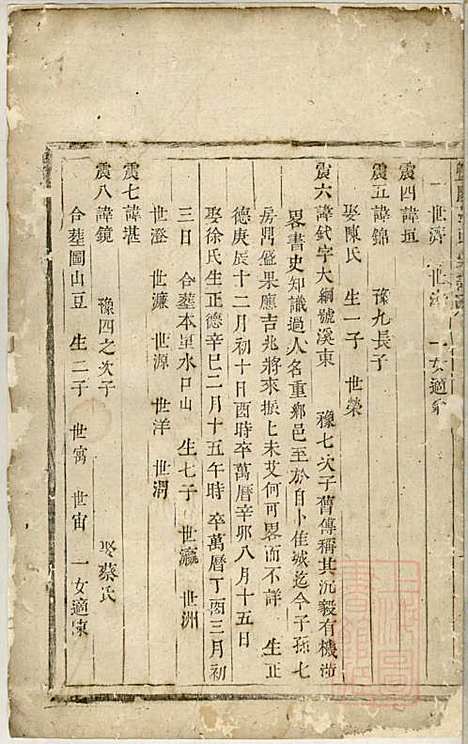 世濟　世　一女適
震四諱垣
震五諱錦　豫九長子
娶陳氏　生一子　世榮
震六諱鉞字大綱號溪東　豫七次子舊傳稱其沉毅有機
畧書史知識過人名重鄉邑至於自卜佳城迄今子孫七
房鼎盛果應吉兆將來振上未艾何可畧而不詳　生正
德庚辰十二月初十日酉時卒萬曆辛卯八月十五日
娶徐氏生正德辛巳二月十五午時　卒萬曆丁酉三月初
三日　合塟本里水口山　生七子　世瀛　世洲
世澄　世濂　世源　世洋　世潤
震七諱堪
震八諱鏡　豫四之次子　娶蔡氏
合塟圖山豆　生二子　世寓　世宙　一女適東